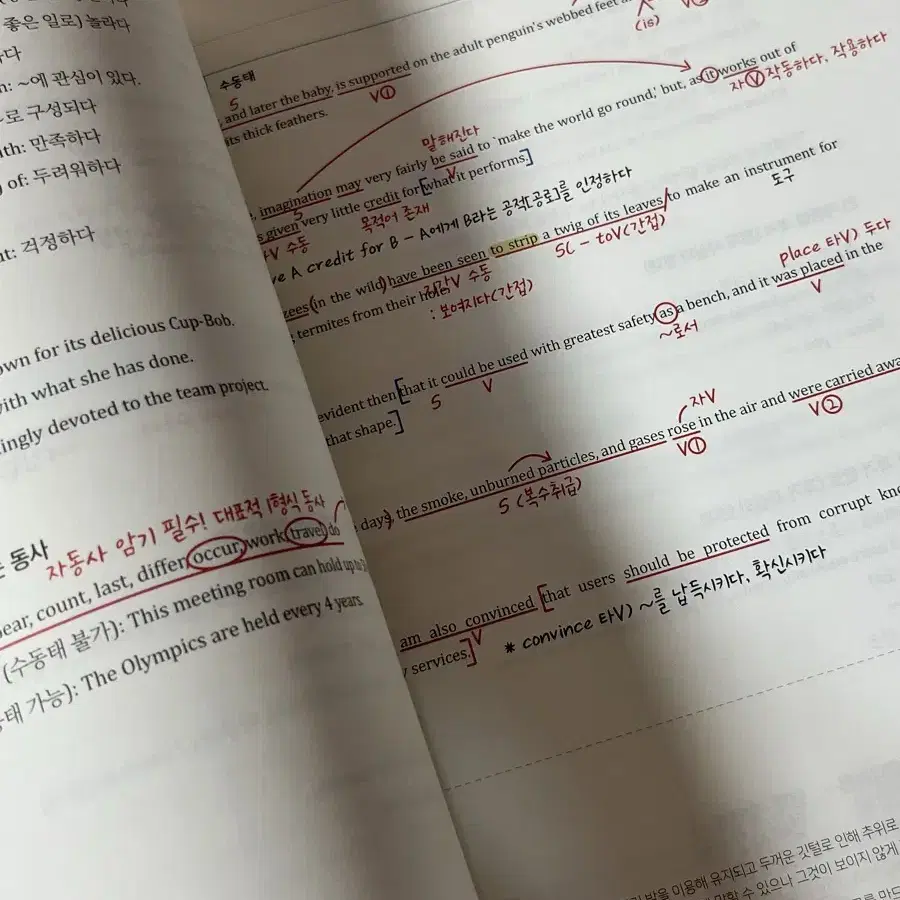 좋은 일로) 놀라다
~에 관심이 있다.
로 구성되다
만족하다
of: 두려워하다
걱정하다
for its delicious Cup-Bob.
with what she has done.
devoted to the team project.
자동사 암기 필수! 대표적 1형식 동사
동사
count, last, differ, occur, work, travel, do
(수동태 불가): This meeting room can hold up to
가능): The Olympics are held every 4 years.
(is)
수동태
S
and later the baby, is supported on the adult penguin's webbed feet
V①
its thick feathers.
말해진다
imagination may very fairly be said to 'make the world go round,' but, as it works out of
S
V
자V 작동하다, 작용하다
given very little credit for [what it performs.]
V 수동
목적어 존재
A credit for B - A에게 B라는 공적[공로]를 인정하다
(in the wild) have been seen to strip a twig of its leaves / to make an instrument for
지각V 수동
SC - toV(간접)
도구
termites from their
: 보여지다(간접)
place 타V) 두다
evident then [that it could be used with greatest safety as a bench, and it was placed in the
S
V
~로서
V
that shape.]
자V
days), the smoke, unburned particles, and gases rose in the air and were carried
S (복수취급)
V①
V②
am also convinced [that users should be protected from corrupt
V
services.]
* convince 타V) ~를 납득시키다, 확신시키다
이용해 유지되고 두꺼운 깃털로 인해 추위로
수 있으나 그것이 보이지 않게